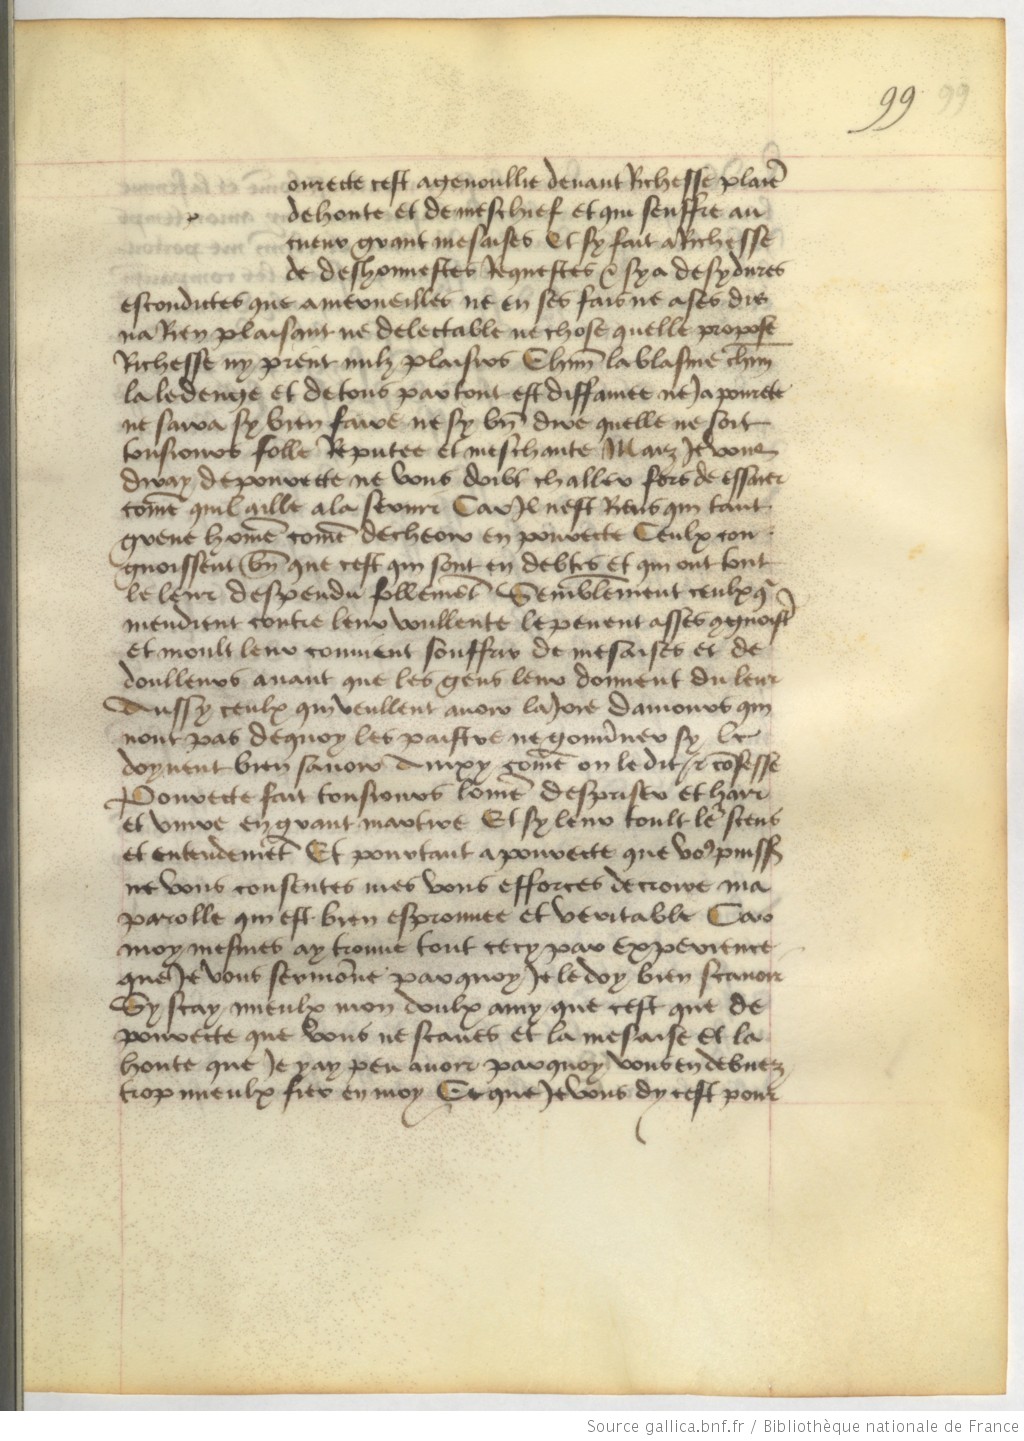 99
ourette cest agenoullie devant Richesse plaiē
de honte et de meschief et qui seuffre au
cueur grant mesaises Et sy fait a Richesse
de deshonnestes Requestes & sy a de sy dures
escondictes que a merveilles ne en ses fais ne a ses dis
na Rien plaisant ne delectable ne chose quelle propose
Richesse ny prent nulz plaisirs Chūn la blasme chūn
la ledenge et de tous par tout est diffamee ne Ja povrete
ne sara sy bien faire ne sy bn̄ dire quelle ne soit
tousiours folle Reputee et meschante Maiz Je vous
diray de pourette ne vous doibt challer fors de essaier
cōme quil aille a la servir Car Il nest Riens qui tant
greve hōme cōme decheoir en pourette Ceulx con
gnoissent bn̄ que cest qui sont en debtes et qui ont tout
le leur despendu follemēt Semblement ceulx q̄
mendient contre leur voullente le pevent asses 9gnoistr̄
et moult leur convient souffrir de mesaises et de
doulleurs avant que les gens leur donnent du leur
Aussy ceulx qui veullent avoir la Joie damours qui
nont pas de quoy les paistre ne gouv̄ner sy le
doyvent bien savoir Ainxy cōme on le dit & cōfesse
Pourette fait tousiours lōme despriser et hair
et vivre en grant martire Et sy leur toult le scens
et entendemēt Et pourtant a pourette que vo9 puissēs
ne vous consentes mes vous efforces de croire ma
parolle qui est bien esprouvee et veritable Car
moy mesmes ay trouve tout cecy par experience
que Je vous sermōne par quoy Je le doy bien scavoir
Sy scay mieulx mon doulx amy que cest que de
pourette que vous ne scaves et la mesaise et la
honte que Je y ay peu avoir par quoy vous en debvez
trop mieulx fier en moy Ce que Je vous dy cest pour
Source gallica.bnf.fr / Bibliothèque nationale de France